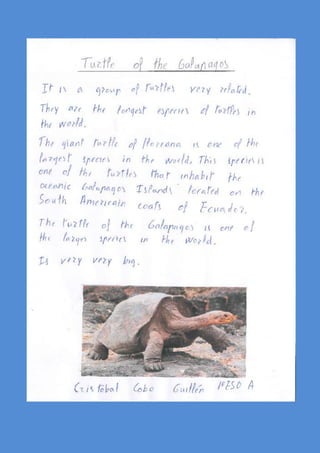 Turtle of the Galapagos
It is a group of turtles very related.
They are the longest especies of turtles in
the world.
The giant turtle of Floreana is one of the
largest species in the world. This species is
one of the turtles that inhabit the
oceanic Galapagos Islands located on the
South American coats of Ecuador.
The turtle of the Galapagos is one of
the larges species in the world.
Is very very big.
Cristóbal Cobo Guillén 1ºESO A